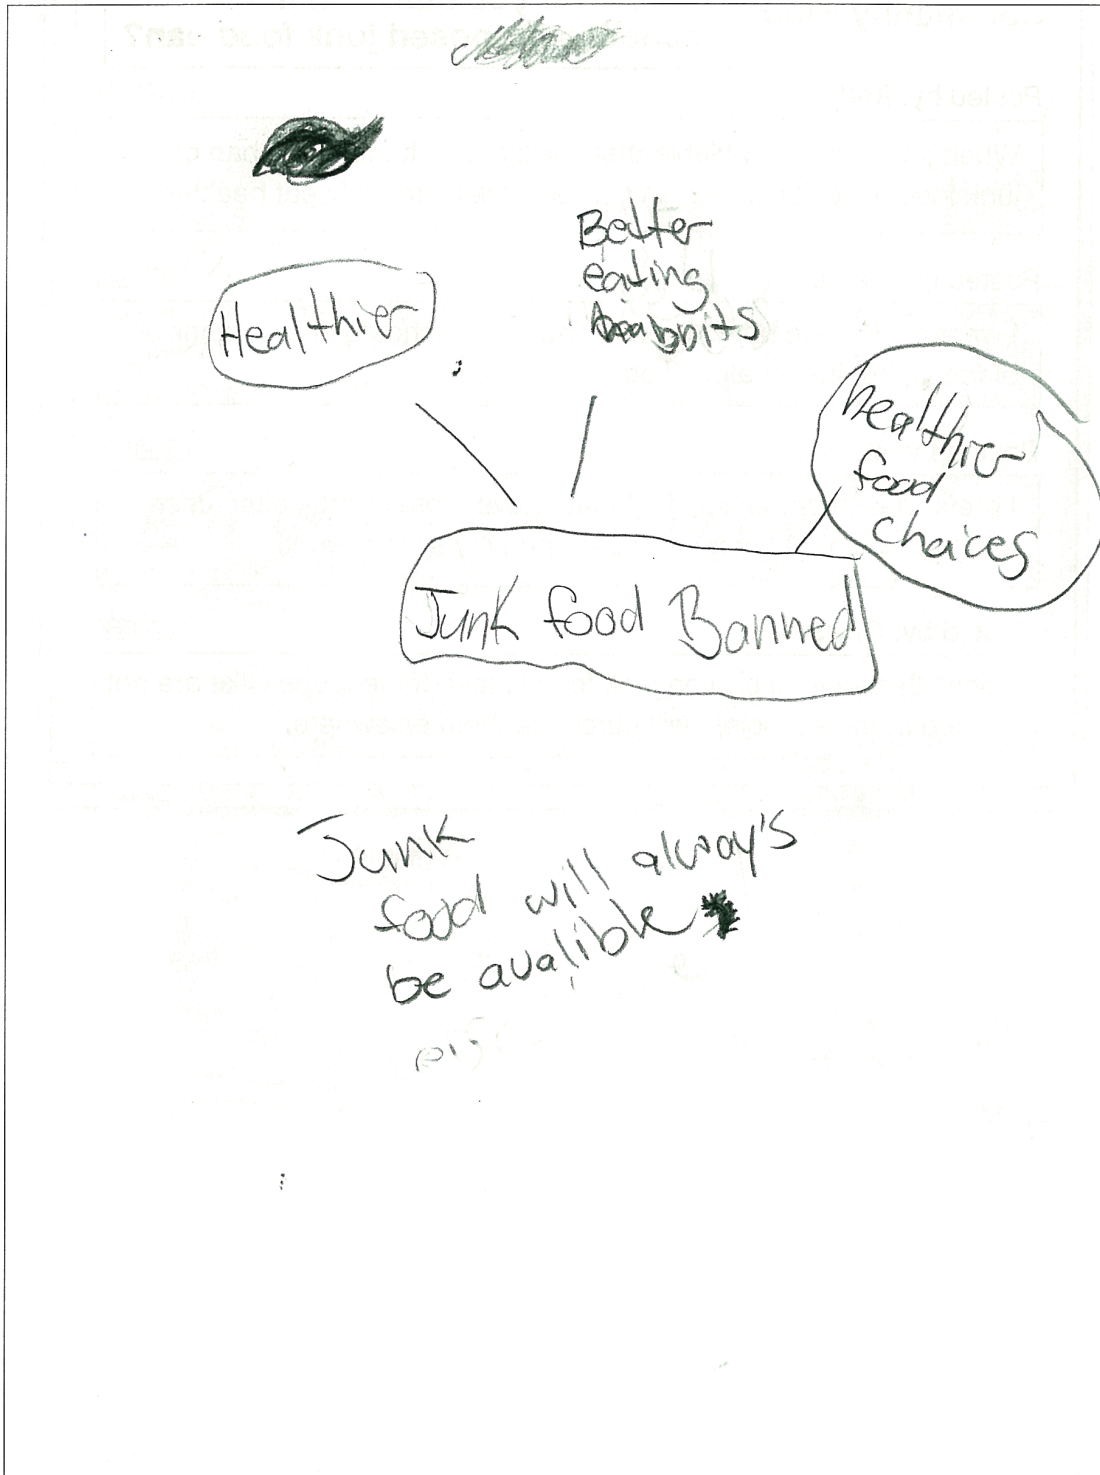 Better
eating
Healthier
healthier
food
choices
Junk food Banned
Junk
food will alway's
be avalible